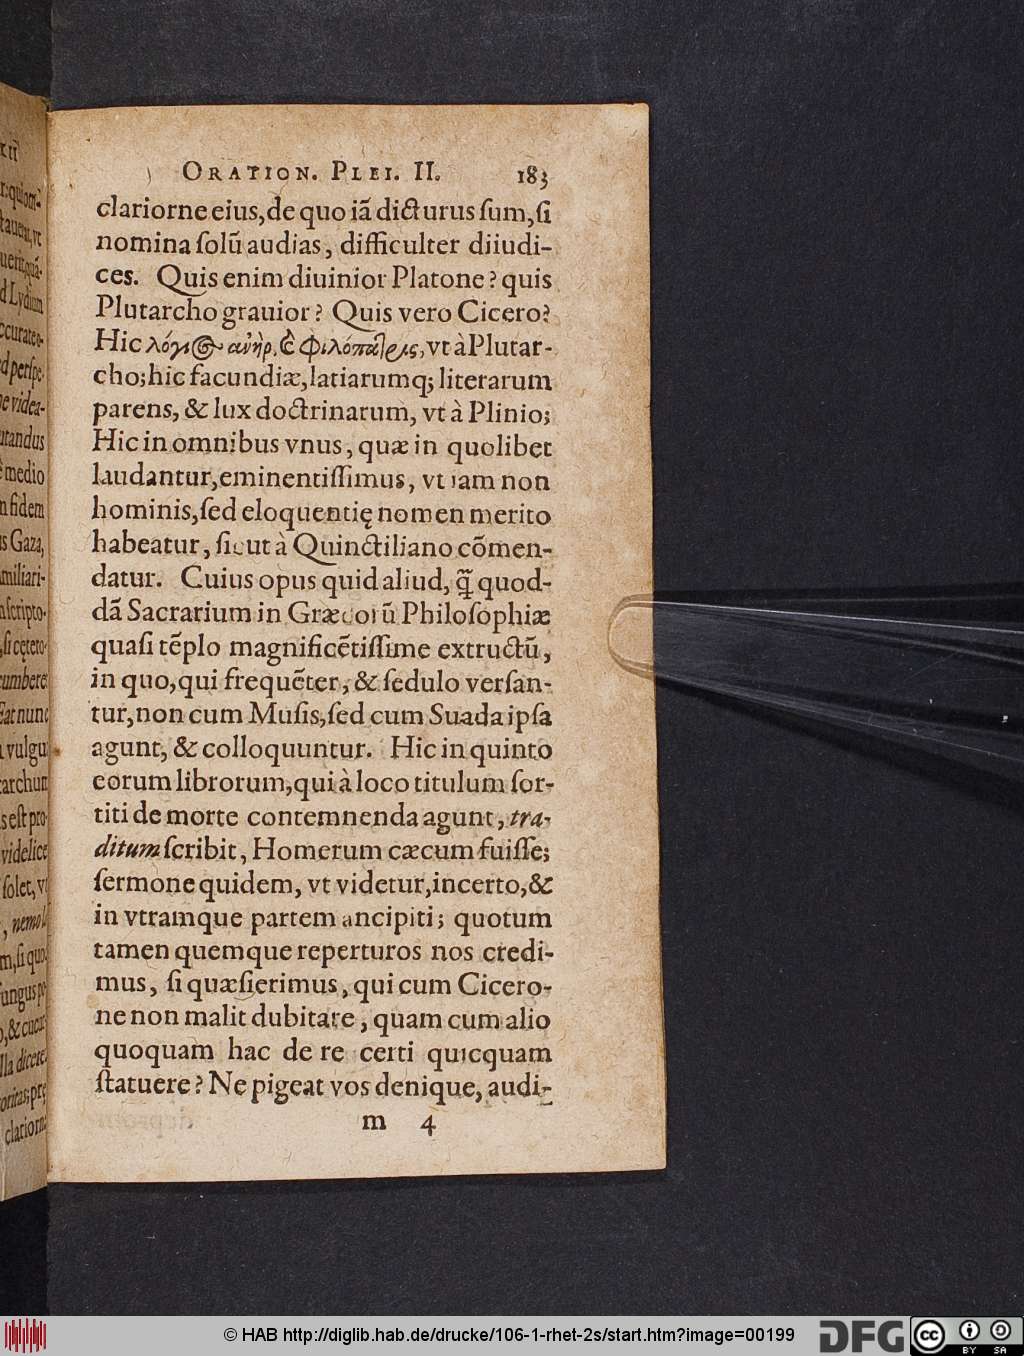 ORATION. PLEI. II. 183
clariorne eius, de quo iã dicturus ſum, ſi
nomina ſolũ audias, difficulter diiudi-
ces. Quis enim diuinior Platone? quis
Plutarcho grauior? Quis vero Cicero?
Hic λόγιος ἀνὴρ, ϗ φιλόπατρις, vt à Plutar-
cho; hic facundiæ, latiarumq; literarum
parens, & lux doctrinarum, vt à Plinio;
Hic in omnibus vnus, quæ in quolibet
laudantur, eminentiſſimus, vt iam non
hominis, ſed eloquentię nomen merito
habeatur, ſicut à Quinctiliano cõmen-
datur. Cuius opus quid aliud, q̃ quod-
dã Sacrarium in Græcorũ Philoſophiæ
quaſi tẽplo magnificẽtiſſime extructũ,
in quo, qui frequẽter, & ſedulo verſan-
tur, non cum Muſis, ſed cum Suada ipſa
agunt, & colloquuntur. Hic in quinto
eorum librorum, qui à loco titulum ſor-
titi de morte contemnenda agunt, tra-
ditum ſcribit, Homerum cæcum fuiſſe;
ſermone quidem, vt videtur, incerto, &
in vtramque partem ancipiti; quotum
tamen quemque reperturos nos credi-
mus, ſi quæſierimus, qui cum Cicero-
ne non malit dubitare, quam cum alio
quoquam hac de re certi quicquam
ſtatuere? Ne pigeat vos denique, audi-
m 4
medio
fidem
s Gaza,
miliari-
ſcripto-
cumbere
Eat nunc
vulgu
tarchum
s eſt pro-
videlice
ſolet, v
nemo
m, ſi quo
fungus p
lla dicere
clariorn
© HAB http://diglib.hab.de/drucke/106-1-rhet-2s/start.htm?image=00199
DFG
cc BY SA